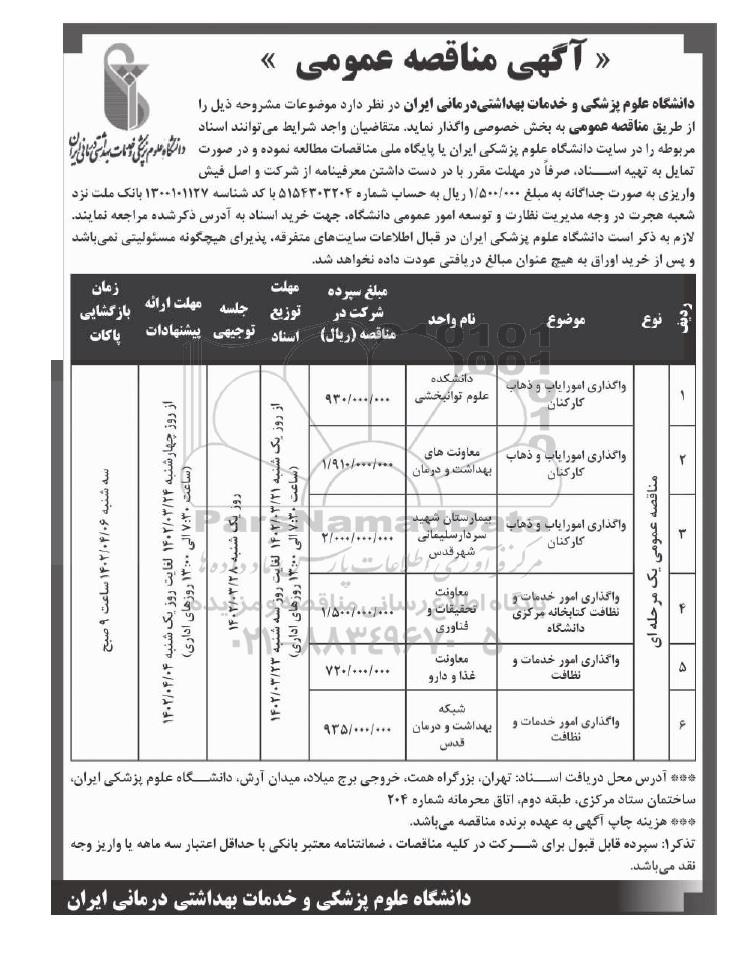 « آگهی مناقصه عمومی »
دانشگاه علوم پزشکی و خدمات بهداشتی درمانی ایران
دانشگاه علوم پزشکی و خدمات بهداشتی‌درمانی ایران در نظر دارد موضوعات مشروحه ذیل را
از طریق مناقصه عمومی به بخش خصوصی واگذار نماید. متقاضیان واجد شرایط می‌توانند اسناد
مربوطه را در سایت دانشگاه علوم پزشکی ایران یا پایگاه ملی مناقصات مطالعه نموده و در صورت
تمایل به تهیه اســناد، صرفاً در مهلت مقرر با در دست داشتن معرفینامه از شرکت و اصل فیش
واریزی به صورت جداگانه به مبلغ ۱/۵۰۰/۰۰۰ ریال به حساب شماره ۵۱۵۴۳۰۳۲۰۴ با کد شناسه ۱۳۰۰۱۰۱۱۲۷ بانک ملت نزد
شعبه هجرت در وجه مدیریت نظارت و توسعه امور عمومی دانشگاه، جهت خرید اسناد به آدرس ذکرشده مراجعه نمایند.
لازم به ذکر است دانشگاه علوم پزشکی ایران در قبال اطلاعات سایت‌های متفرقه، پذیرای هیچگونه مسئولیتی نمی‌باشد
و پس از خرید اوراق به هیچ عنوان مبالغ دریافتی عودت داده نخواهد شد.
ردیف
نوع
موضوع
نام واحد
مبلغ سپرده
شرکت در
مناقصه (ریال)
مهلت
توزیع
اسناد
جلسه
توجیهی
مهلت ارائه
پیشنهادات
زمان
بازگشایی
پاکات
مناقصه عمومی یک مرحله ای
۱
واگذاری امورایاب و ذهاب
کارکنان
دانشکده
علوم توانبخشی
۹۳۰/۰۰۰/۰۰۰
۲
واگذاری امورایاب و ذهاب
کارکنان
معاونت های
بهداشت و درمان
۱/۹۱۰/۰۰۰/۰۰۰
۳
واگذاری امورایاب و ذهاب
کارکنان
بیمارستان شهید
سردارسلیمانی
شهرقدس
۲/۰۰۰/۰۰۰/۰۰۰
۴
واگذاری امور خدمات و
نظافت کتابخانه مرکزی
دانشگاه
معاونت
تحقیقات و
فناوری
۱/۵۰۰/۰۰۰/۰۰۰
۵
واگذاری امور خدمات و
نظافت
معاونت
غذا و دارو
۷۲۰/۰۰۰/۰۰۰
۶
واگذاری امور خدمات و
نظافت
شبکه
بهداشت و درمان
قدس
۹۳۵/۰۰۰/۰۰۰
از روز یک شنبه ۱۴۰۲/۰۳/۲۱ لغایت روز سه شنبه ۱۴۰۲/۰۳/۲۳
(ساعت ۷:۳۰ الی ۱۳:۰۰ روزهای اداری)
روز یک شنبه ۱۴۰۲/۰۳/۲۸
از روز چهارشنبه ۱۴۰۲/۰۳/۲۴ لغایت روز یک شنبه ۱۴۰۲/۰۴/۰۴
(ساعت ۷:۳۰ الی ۱۳:۰۰ روزهای اداری)
سه شنبه ۱۴۰۲/۰۴/۰۶ ساعت ۹ صبح
ParsNamadData
مرکز فرآوری اطلاعات پارس نماد داده ها
پایگاه اطلاع رسانی مناقصه و مزایده
۰۲۱-۸۸۳۴۹۶۷۰-۵
*** آدرس محل دریافت اســناد: تهران، بزرگراه همت، خروجی برج میلاد، میدان آرش، دانشــگاه علوم پزشکی ایران،
ساختمان ستاد مرکزی، طبقه دوم، اتاق محرمانه شماره ۲۰۴
*** هزینه چاپ آگهی به عهده برنده مناقصه می‌باشد.
تذکر۱: سپرده قابل قبول برای شــرکت در کلیه مناقصات ، ضمانتنامه معتبر بانکی با حداقل اعتبار سه ماهه یا واریز وجه
نقد می‌باشد.
دانشگاه علوم پزشکی و خدمات بهداشتی درمانی ایران